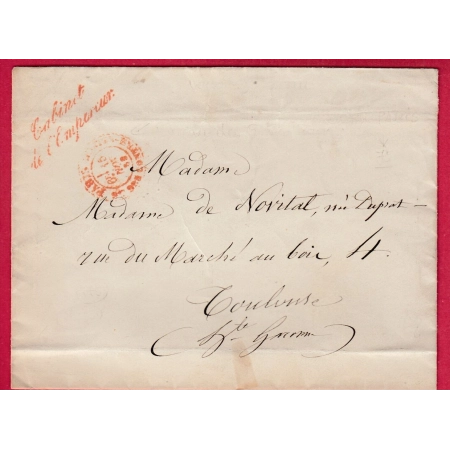 Cabinet
de l'Empereur
PARIS
Madame
Madame de Novital, née Duprat
rue du Marché au bois, 4.
Toulouse
Hte Garonne